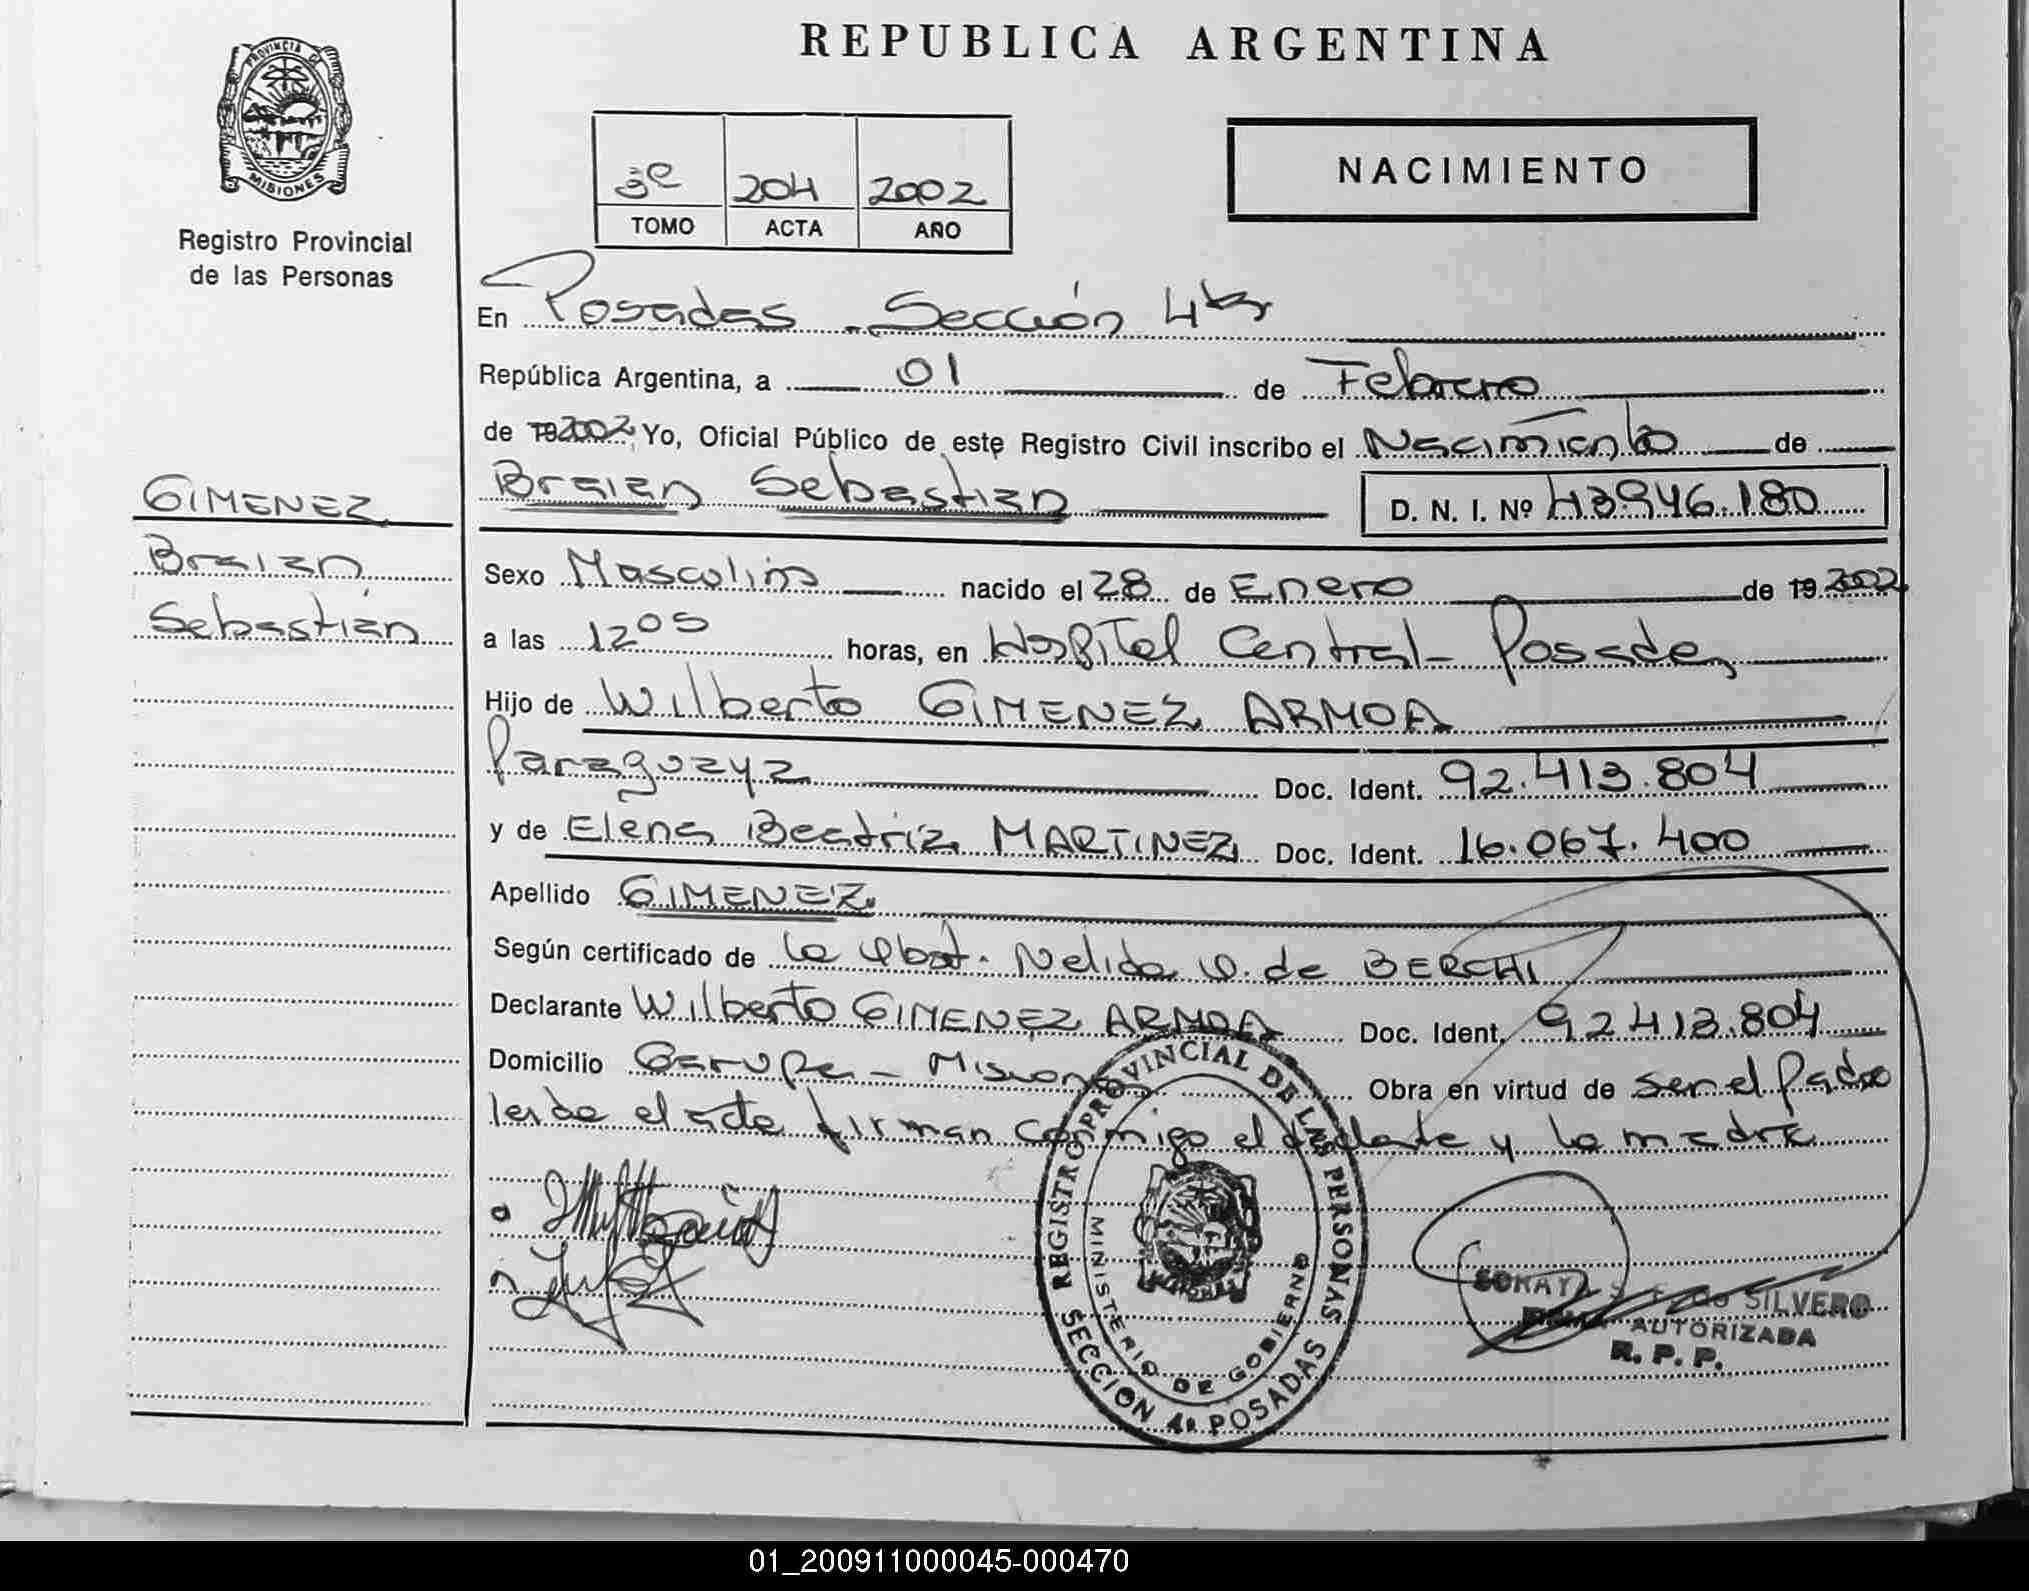 REPUBLICA ARGENTINA
PROVINCIA DE
MISIONES
Registro Provincial
de las Personas
3º 204 2002
TOMO ACTA AÑO
NACIMIENTO
En Posadas - Sección 4ta
República Argentina, a 01 de Febrero
de 19 2002 Yo, Oficial Público de este Registro Civil inscribo el Nacimiento de
GIMENEZ
Braian
Sebastián
Braian Sebastián D. N. I. Nº 43.946.180
Sexo Masculino nacido el 28 de Enero de 19 2002
a las 12 05 horas, en Hospital Central - Posadas
Hijo de Wilberto GIMENEZ ARMOA
Paraguaya Doc. Ident. 92.413.804
y de Elena Beatriz MARTINEZ Doc. Ident. 16.067.400
Apellido GIMENEZ
Según certificado de la Obst. Nelida O. de BERCHI
Declarante Wilberto GIMENEZ ARMOA Doc. Ident. 92.413.804
Domicilio Garupa - Misiones Obra en virtud de ser el Padre
leida el acta firman conmigo el y la madre
REGISTRO PROVINCIAL DE LAS PERSONAS
MINISTERIO DE GOBIERNO
SECCION 4ª POSADAS
SORAYA SILVERO
AUTORIZADA
R. P. P.
01_200911000045-000470